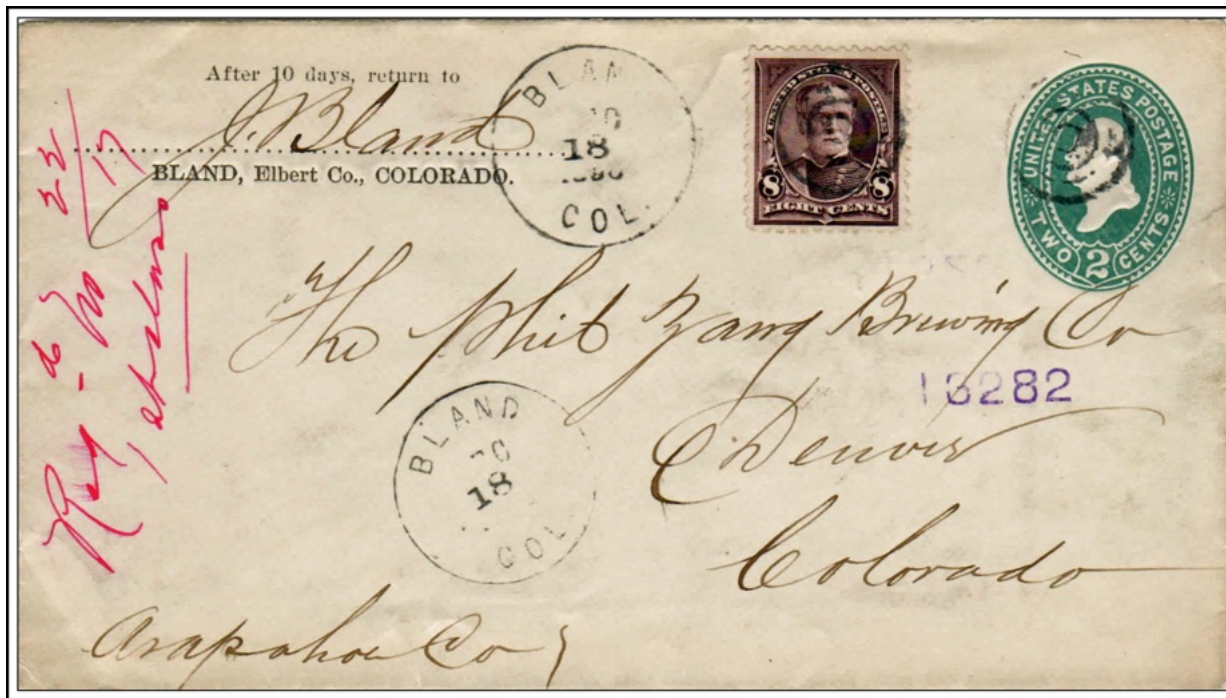 After 10 days, return to
J. Bland
BLAND, Elbert Co., COLORADO.
BLAN
18
COL.
UNITED STATES POSTAGE
8 8
EIGHT CENTS
UNITED STATES POSTAGE
TWO 2 CENTS
The Phil Zang Brewing Co
13282
Denver
Colorado
BLAND
18
COL
Arapahoe Co
22
17